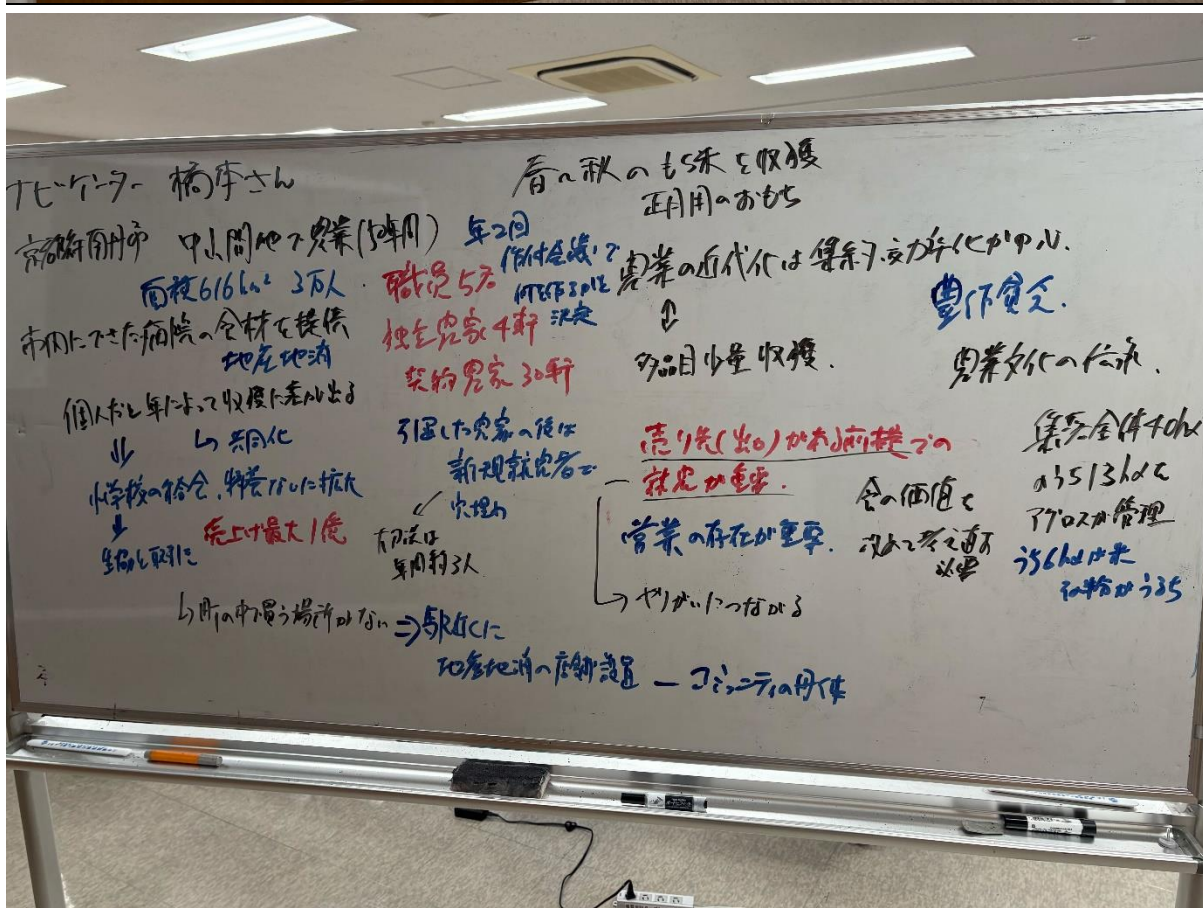 ナビゲーター 橋本さん
京都府南丹市 中山間地で農業(50年間)
面積616km² 3万人
市内にできた病院の食材を提供
地産地消
個人だと年によって収穫に差が出る
↳ 共同化
⇓
小学校の給食、特養などに拡大
↓
生協と取引に
売上げ最大1億
↳町の中で買う場所がない ⇒駅近くに
地産地消の店舗設置 ー コミュニティの
年2回
作付会議で
何を作るかを
決定
職員5名
独立農家4軒
契約農家30軒
引退した農家の後は
新規就農者で
穴埋め
年間約3人
春〜秋のもち米を収穫
正月用のおもち
農業の近代化は集約、効力年化が中心.
⇕
多品目少量収穫.
豊作貧乏.
農業文化の伝承.
売り先(出口)がある前提での
就農が重要.
営業の存在が重要.
↳やりがいにつながる
食の価値を
改めて考え直す
必要
集落全体40ha
のうち13haを
アグロスが管理
うち6haが米
その半分がうるち